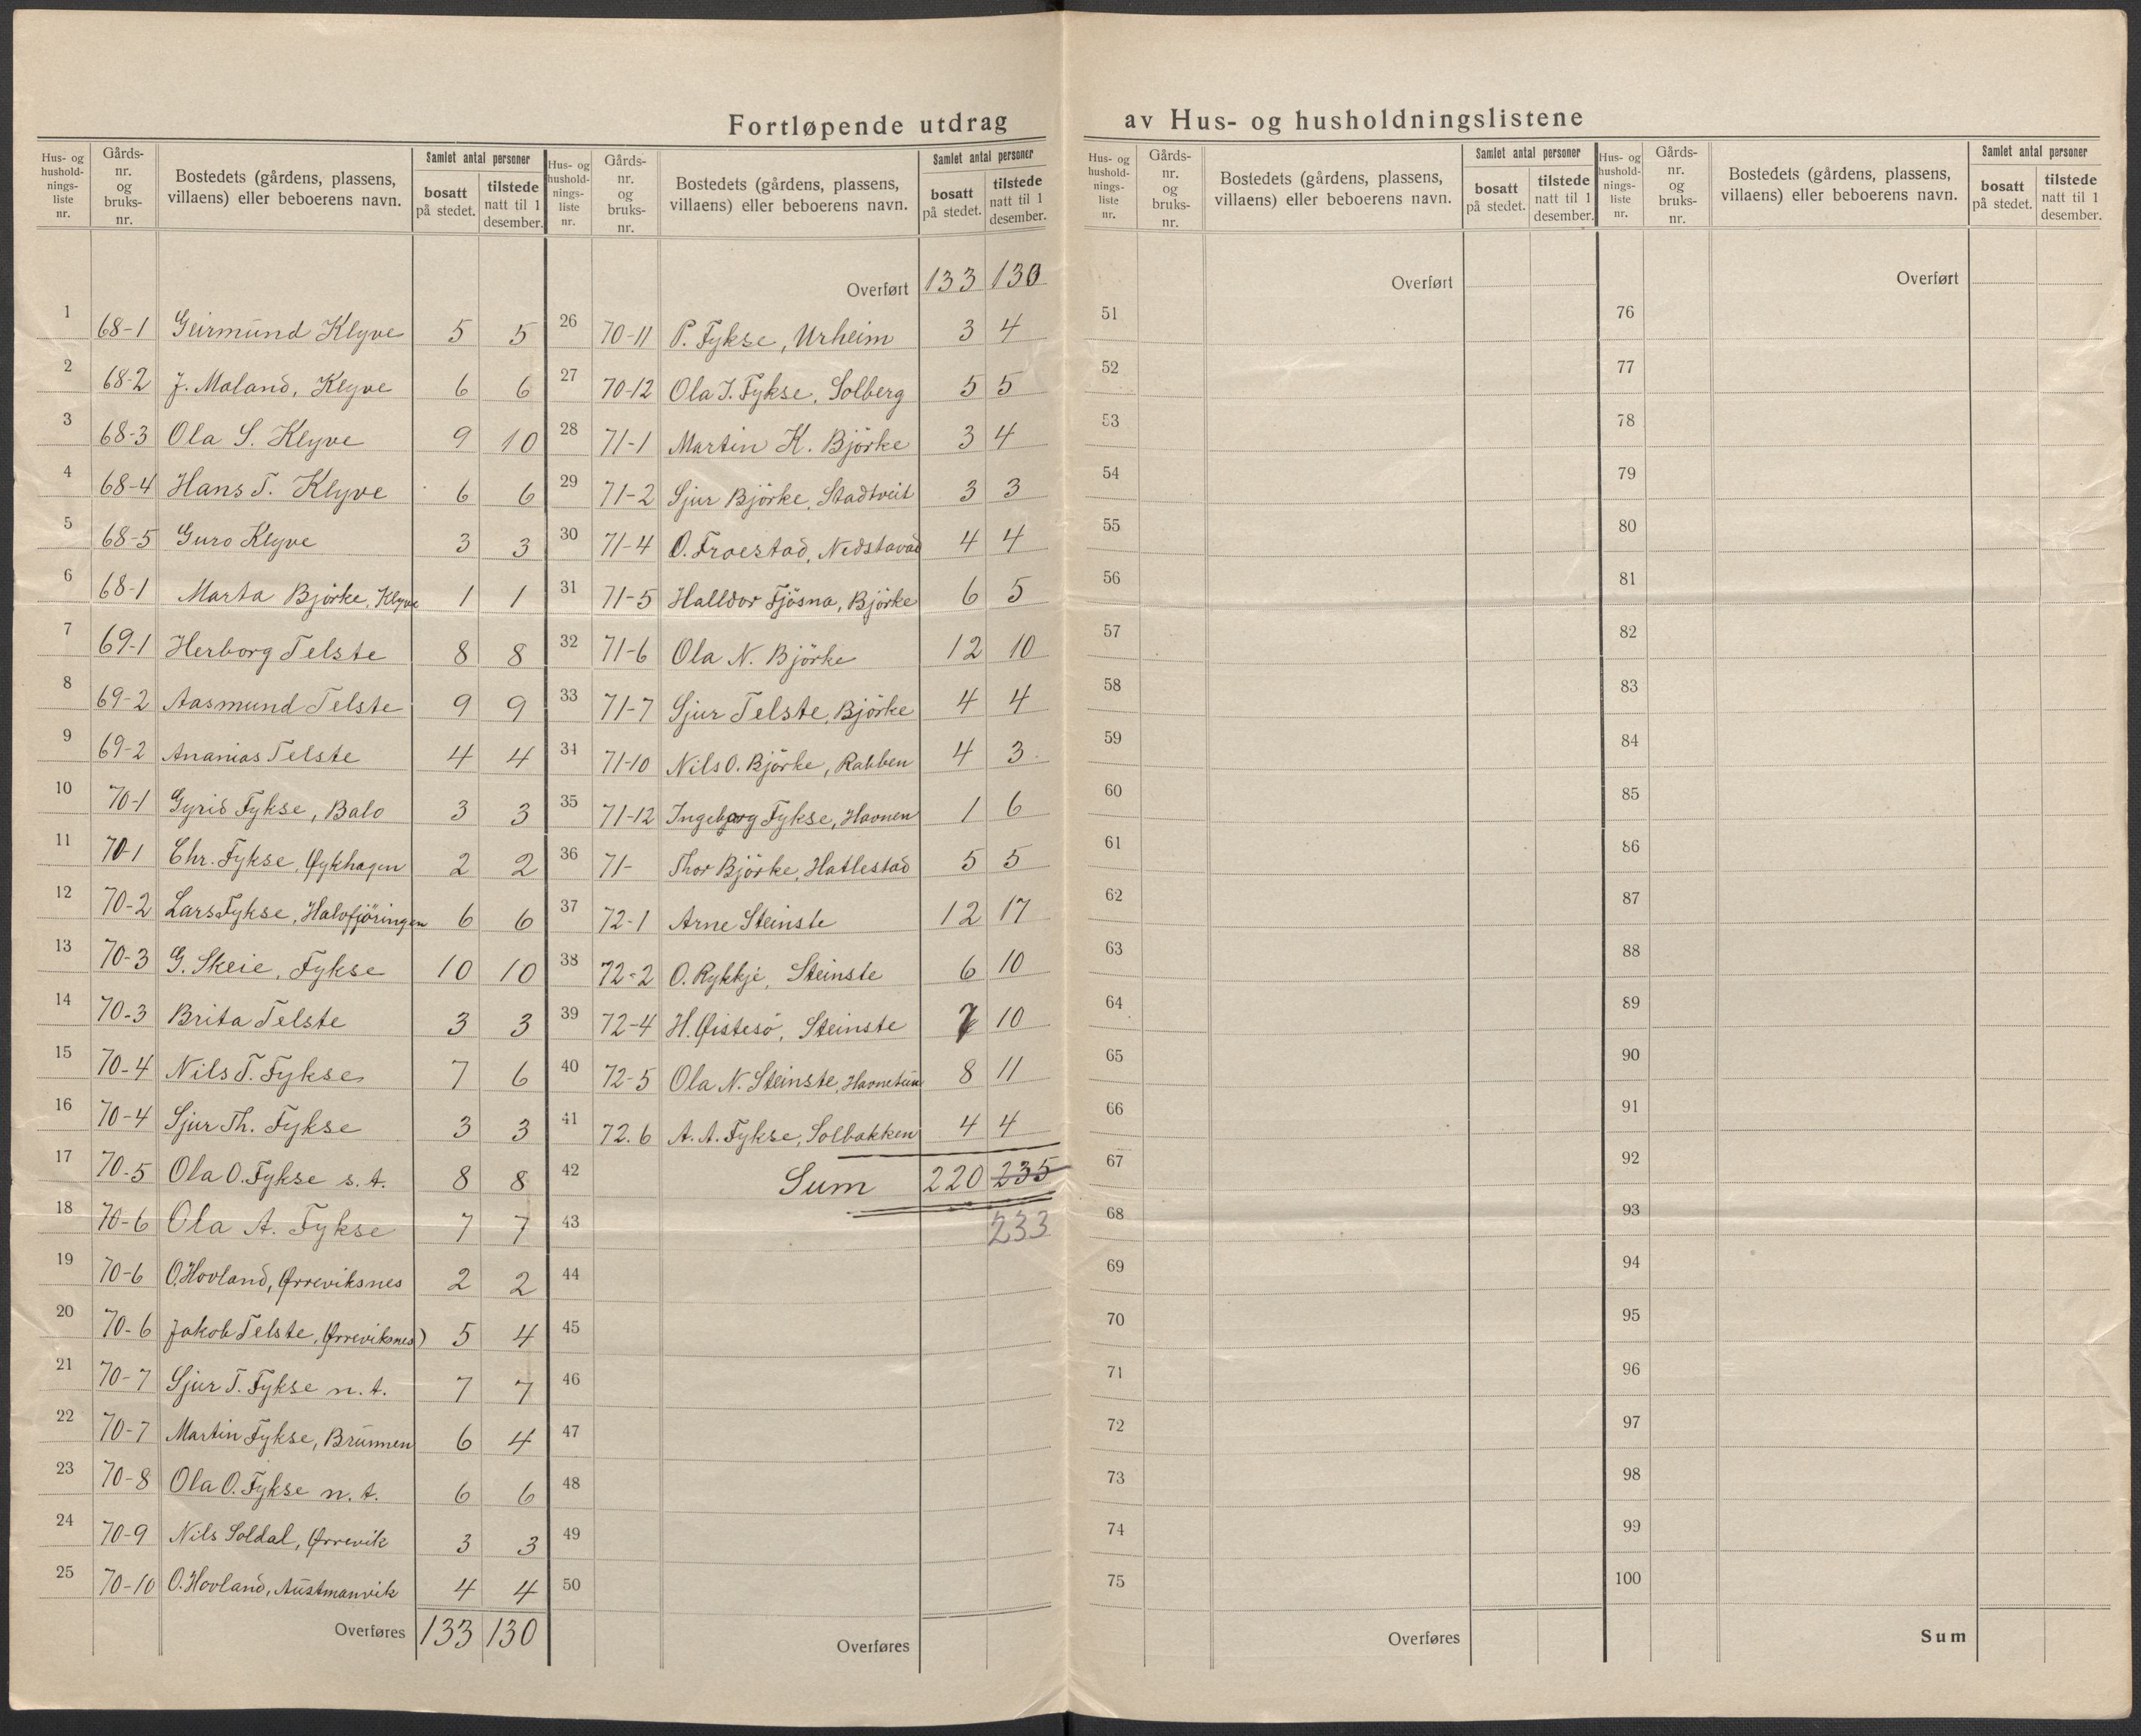 Fortløpende utdrag av Hus- og husholdningslistene
Hus- og husholdningsliste nr. Gårds-nr. og bruks-nr. Bostedets (gårdens, plassens, villaens) eller beboerens navn. Samlet antal personer bosatt på stedet. tilstede natt til 1 desember.
1 68-1 Geirmund Klyve 5 5
2 68-2 J. Moland, Klyve 6 6
3 68-3 Ola S. Klyve 9 10
4 68-4 Hans T. Klyve 6 6
5 68-5 Guro Klyve 3 3
6 68-1 Marta Björke, Klyve 1 1
7 69-1 Herborg Telste 8 8
8 69-2 Aasmund Telste 9 9
9 69-2 Ananias Telste 4 4
10 70-1 Gyrid Fykse, Balo 3 3
11 70-1 Chr. Fykse, Øykhagen 2 2
12 70-2 Lars Fykse, Halvfjöringen 6 6
13 70-3 G. Skeie, Fykse 10 10
14 70-3 Brita Telste 3 3
15 70-4 Nils T. Fykse 7 6
16 70-4 Sjur Th. Fykse 3 3
17 70-5 Ola O. Fykse s. t. 8 8
18 70-6 Ola A. Fykse 7 7
19 70-6 O. Hovland, Ørreviksnes 2 2
20 70-6 Jakob Telste, Ørreviksnes) 5 4
21 70-7 Sjur T. Fykse n. t. 7 7
22 70-7 Martin Fykse, Brunnen 6 4
23 70-8 Ola O. Fykse n. t. 6 6
24 70-9 Nils Soldal, Ørrevik 3 3
25 70-10 O. Hovland, Austmanvik 4 4
Overføres 133 130
Hus- og husholdningsliste nr. Gårds-nr. og bruks-nr. Bostedets (gårdens, plassens, villaens) eller beboerens navn. Samlet antal personer bosatt på stedet. tilstede natt til 1 desember.
Overført 133 130
26 70-11 P. Fykse, Urheim 3 4
27 70-12 Ola J. Fykse, Solberg 5 5
28 71-1 Martin K. Björke 3 4
29 71-2 Sjur Björke, Stadtveit 3 3
30 71-4 O. Froestad, Nedstavad 4 4
31 71-5 Halldor Fjösna, Björke 6 5
32 71-6 Ola N. Björke 12 10
33 71-7 Sjur Telste, Björke 4 4
34 71-10 Nils O. Björke, Rabben 4 3
35 71-12 Ingeborg Fykse, Havnen 1 6
36 71- Thor Björke, Hatlestad 5 5
37 72-1 Arne Steinste 12 17
38 72-2 O. Rykkje, Steinste 6 10
39 72-4 H. Øistesö, Steinste 7 10
40 72-5 Ola N. Steinste, Havnetun 8 11
41 72.6 A. A. Fykse, Solbakken 4 4
42 Sum 220 235
43 233
44
45
46
47
48
49
50
Overføres
Hus- og husholdningsliste nr. Gårds-nr. og bruks-nr. Bostedets (gårdens, plassens, villaens) eller beboerens navn. Samlet antal personer bosatt på stedet. tilstede natt til 1 desember.
Overført
51
52
53
54
55
56
57
58
59
60
61
62
63
64
65
66
67
68
69
70
71
72
73
74
75
Overføres
Hus- og husholdningsliste nr. Gårds-nr. og bruks-nr. Bostedets (gårdens, plassens, villaens) eller beboerens navn. Samlet antal personer bosatt på stedet. tilstede natt til 1 desember.
Overført
76
77
78
79
80
81
82
83
84
85
86
87
88
89
90
91
92
93
94
95
96
97
98
99
100
Sum